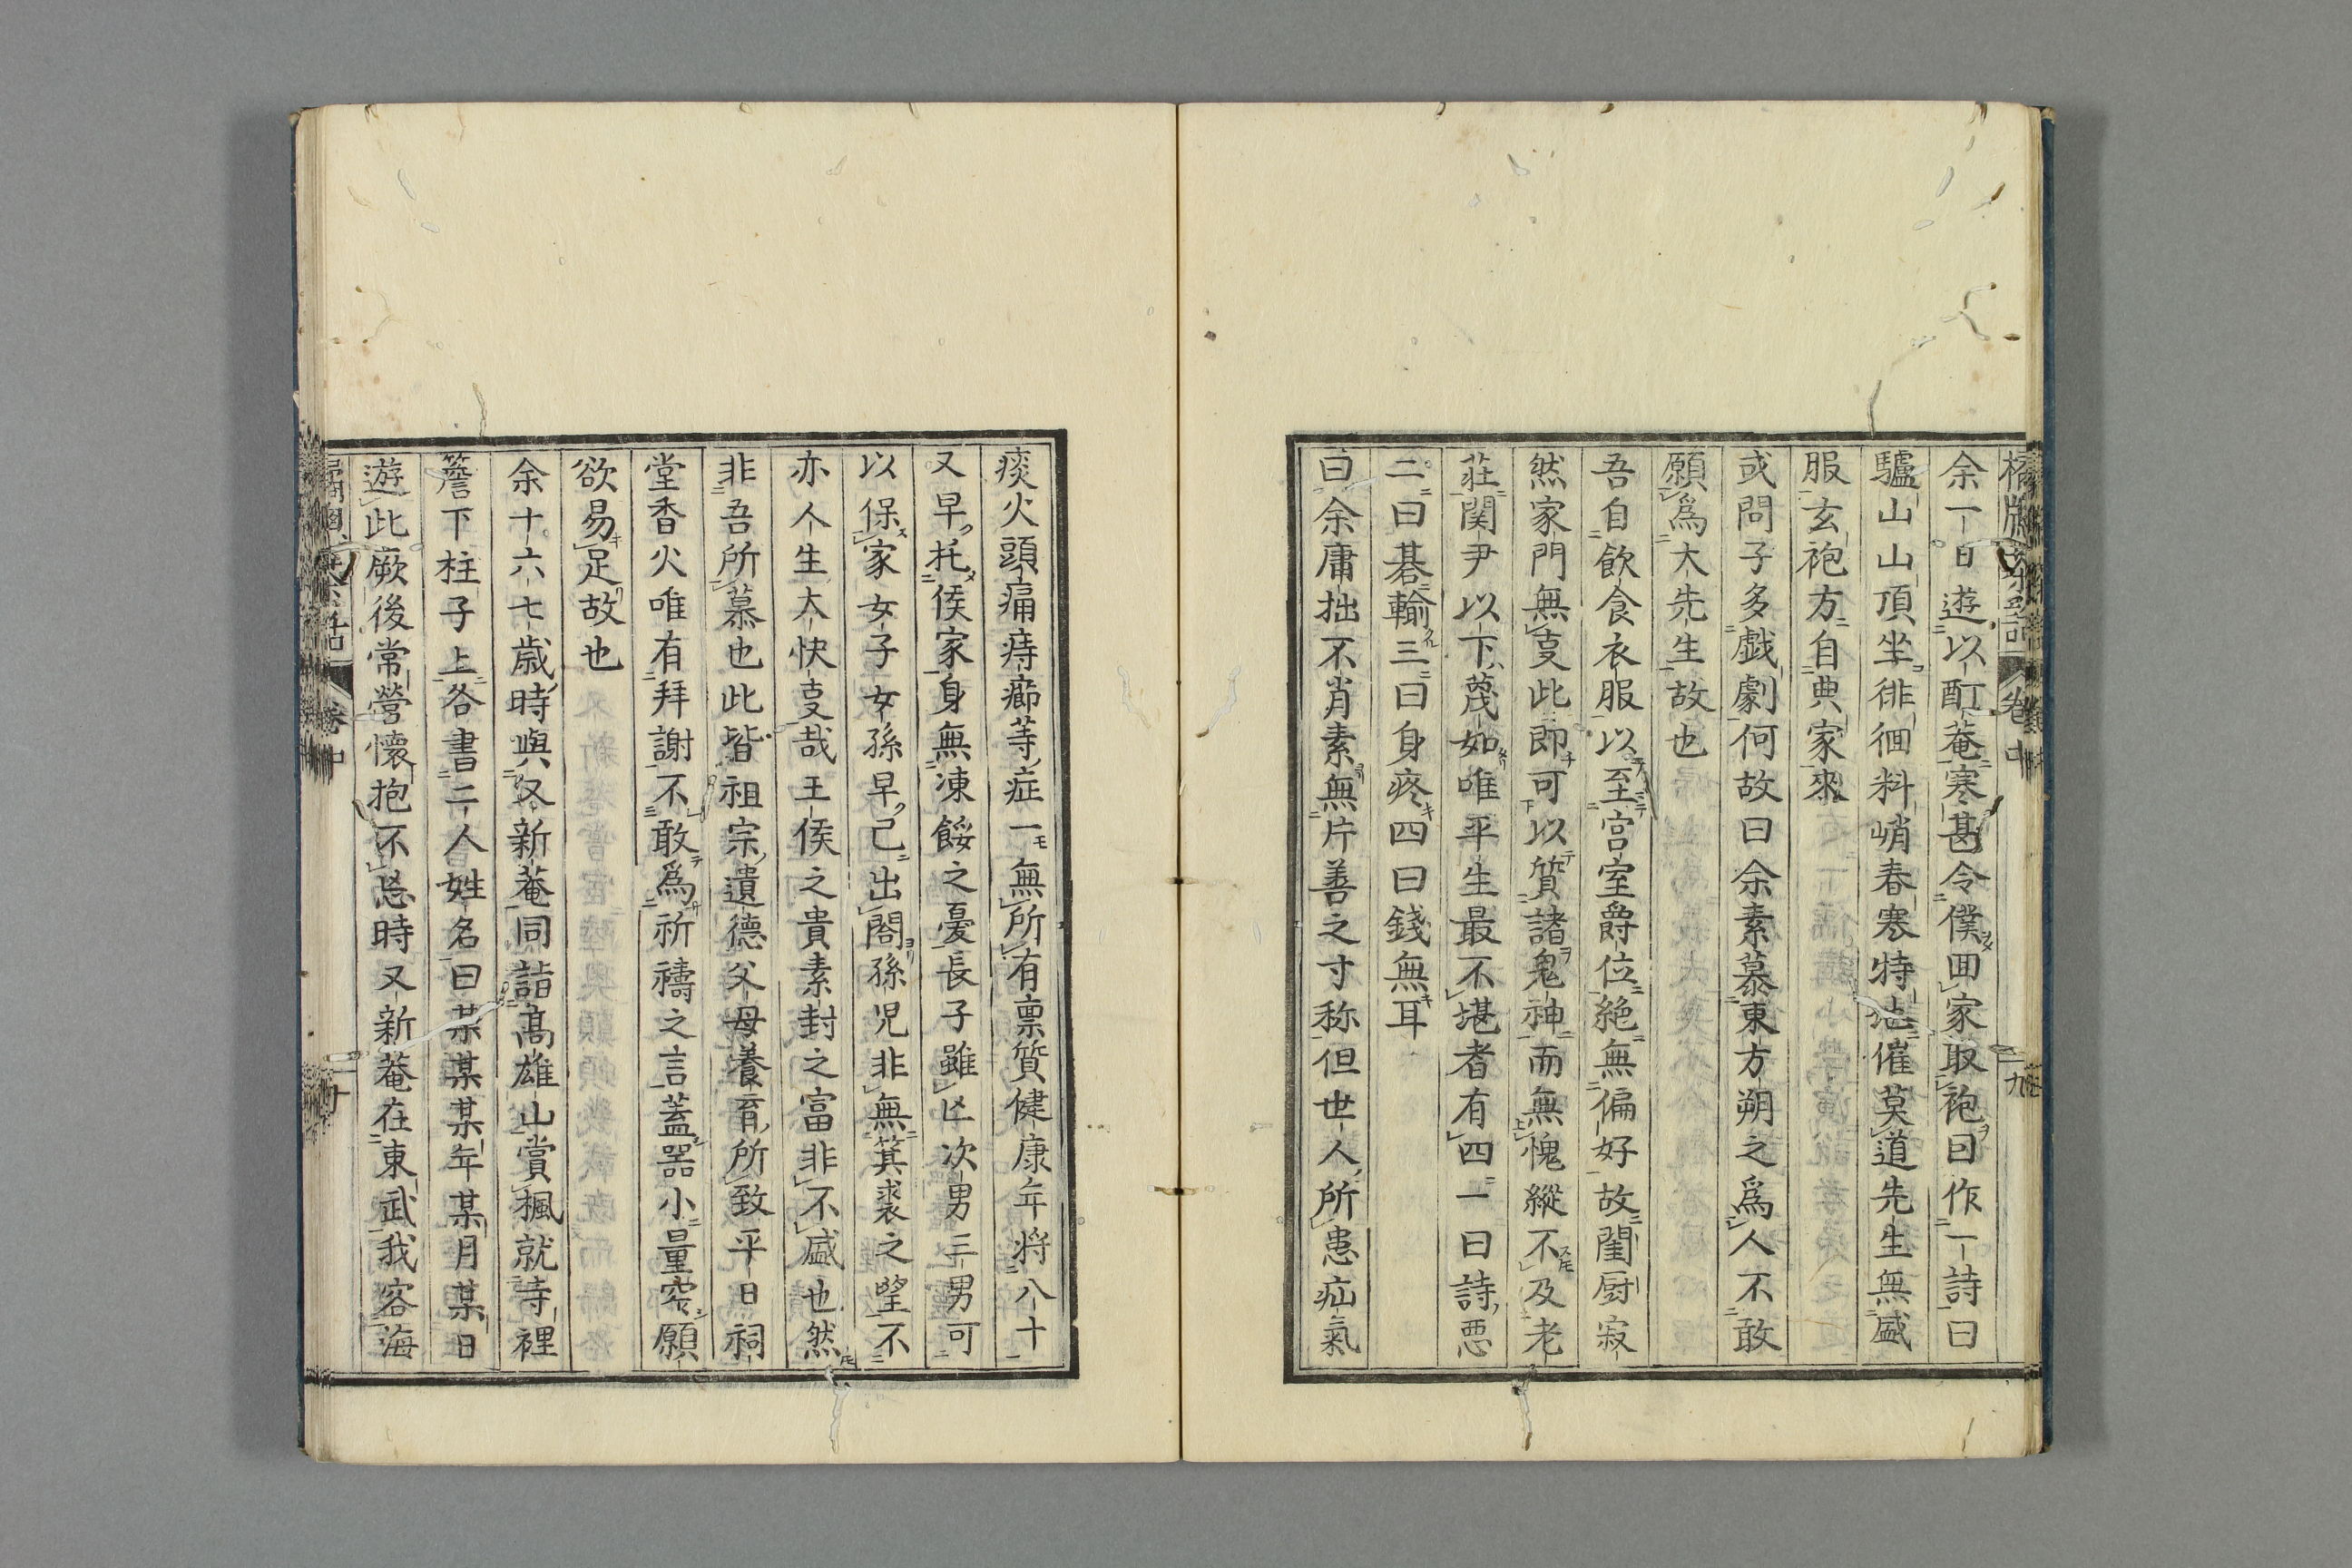 余一日遊以酊菴寒甚令僕囬家取袍曰作一詩曰
驢山山頂坐徘徊料峭春寒特地催莫道先生無盛
服玄袍方自典家來
或問子多戯劇何故曰余素慕東方朔之為人不敢
願為大先生故也
吾自飲食衣服以至宮室爵位絶無偏好故閨厨寂
然家門無㕝此即可以質諸鬼神而無愧縱不及老
莊関尹以下蔑如唯平生最不堪者有四一曰詩悪
二曰碁輸三曰身疼四曰錢無耳
曰余庸拙不肖素無片善之寸称但世人所患疝氣
痰火頭痛痔癤䓁症一無所有禀質健康年将八十
又早托侯家身無凍餒之憂長子雖亡次男三男可
以保家女子女孫早已出閤孫児非無箕裘之望不
亦人生大快㕝哉王侯之貴素封之富非不盛也然
非吾所慕也此皆祖宗遺德父母養育所致平日祠
堂香火唯有拜謝不敢為祈禱之言蓋器小量窄願
欲易足故也
余十六七歳時與又新菴同詣高雄山賞楓就寺裡
簷下柱子上各書二人姓名曰某某某年某月某日
遊此厥後常營懐抱不忘時又新菴在東武我客海
卷中
十九